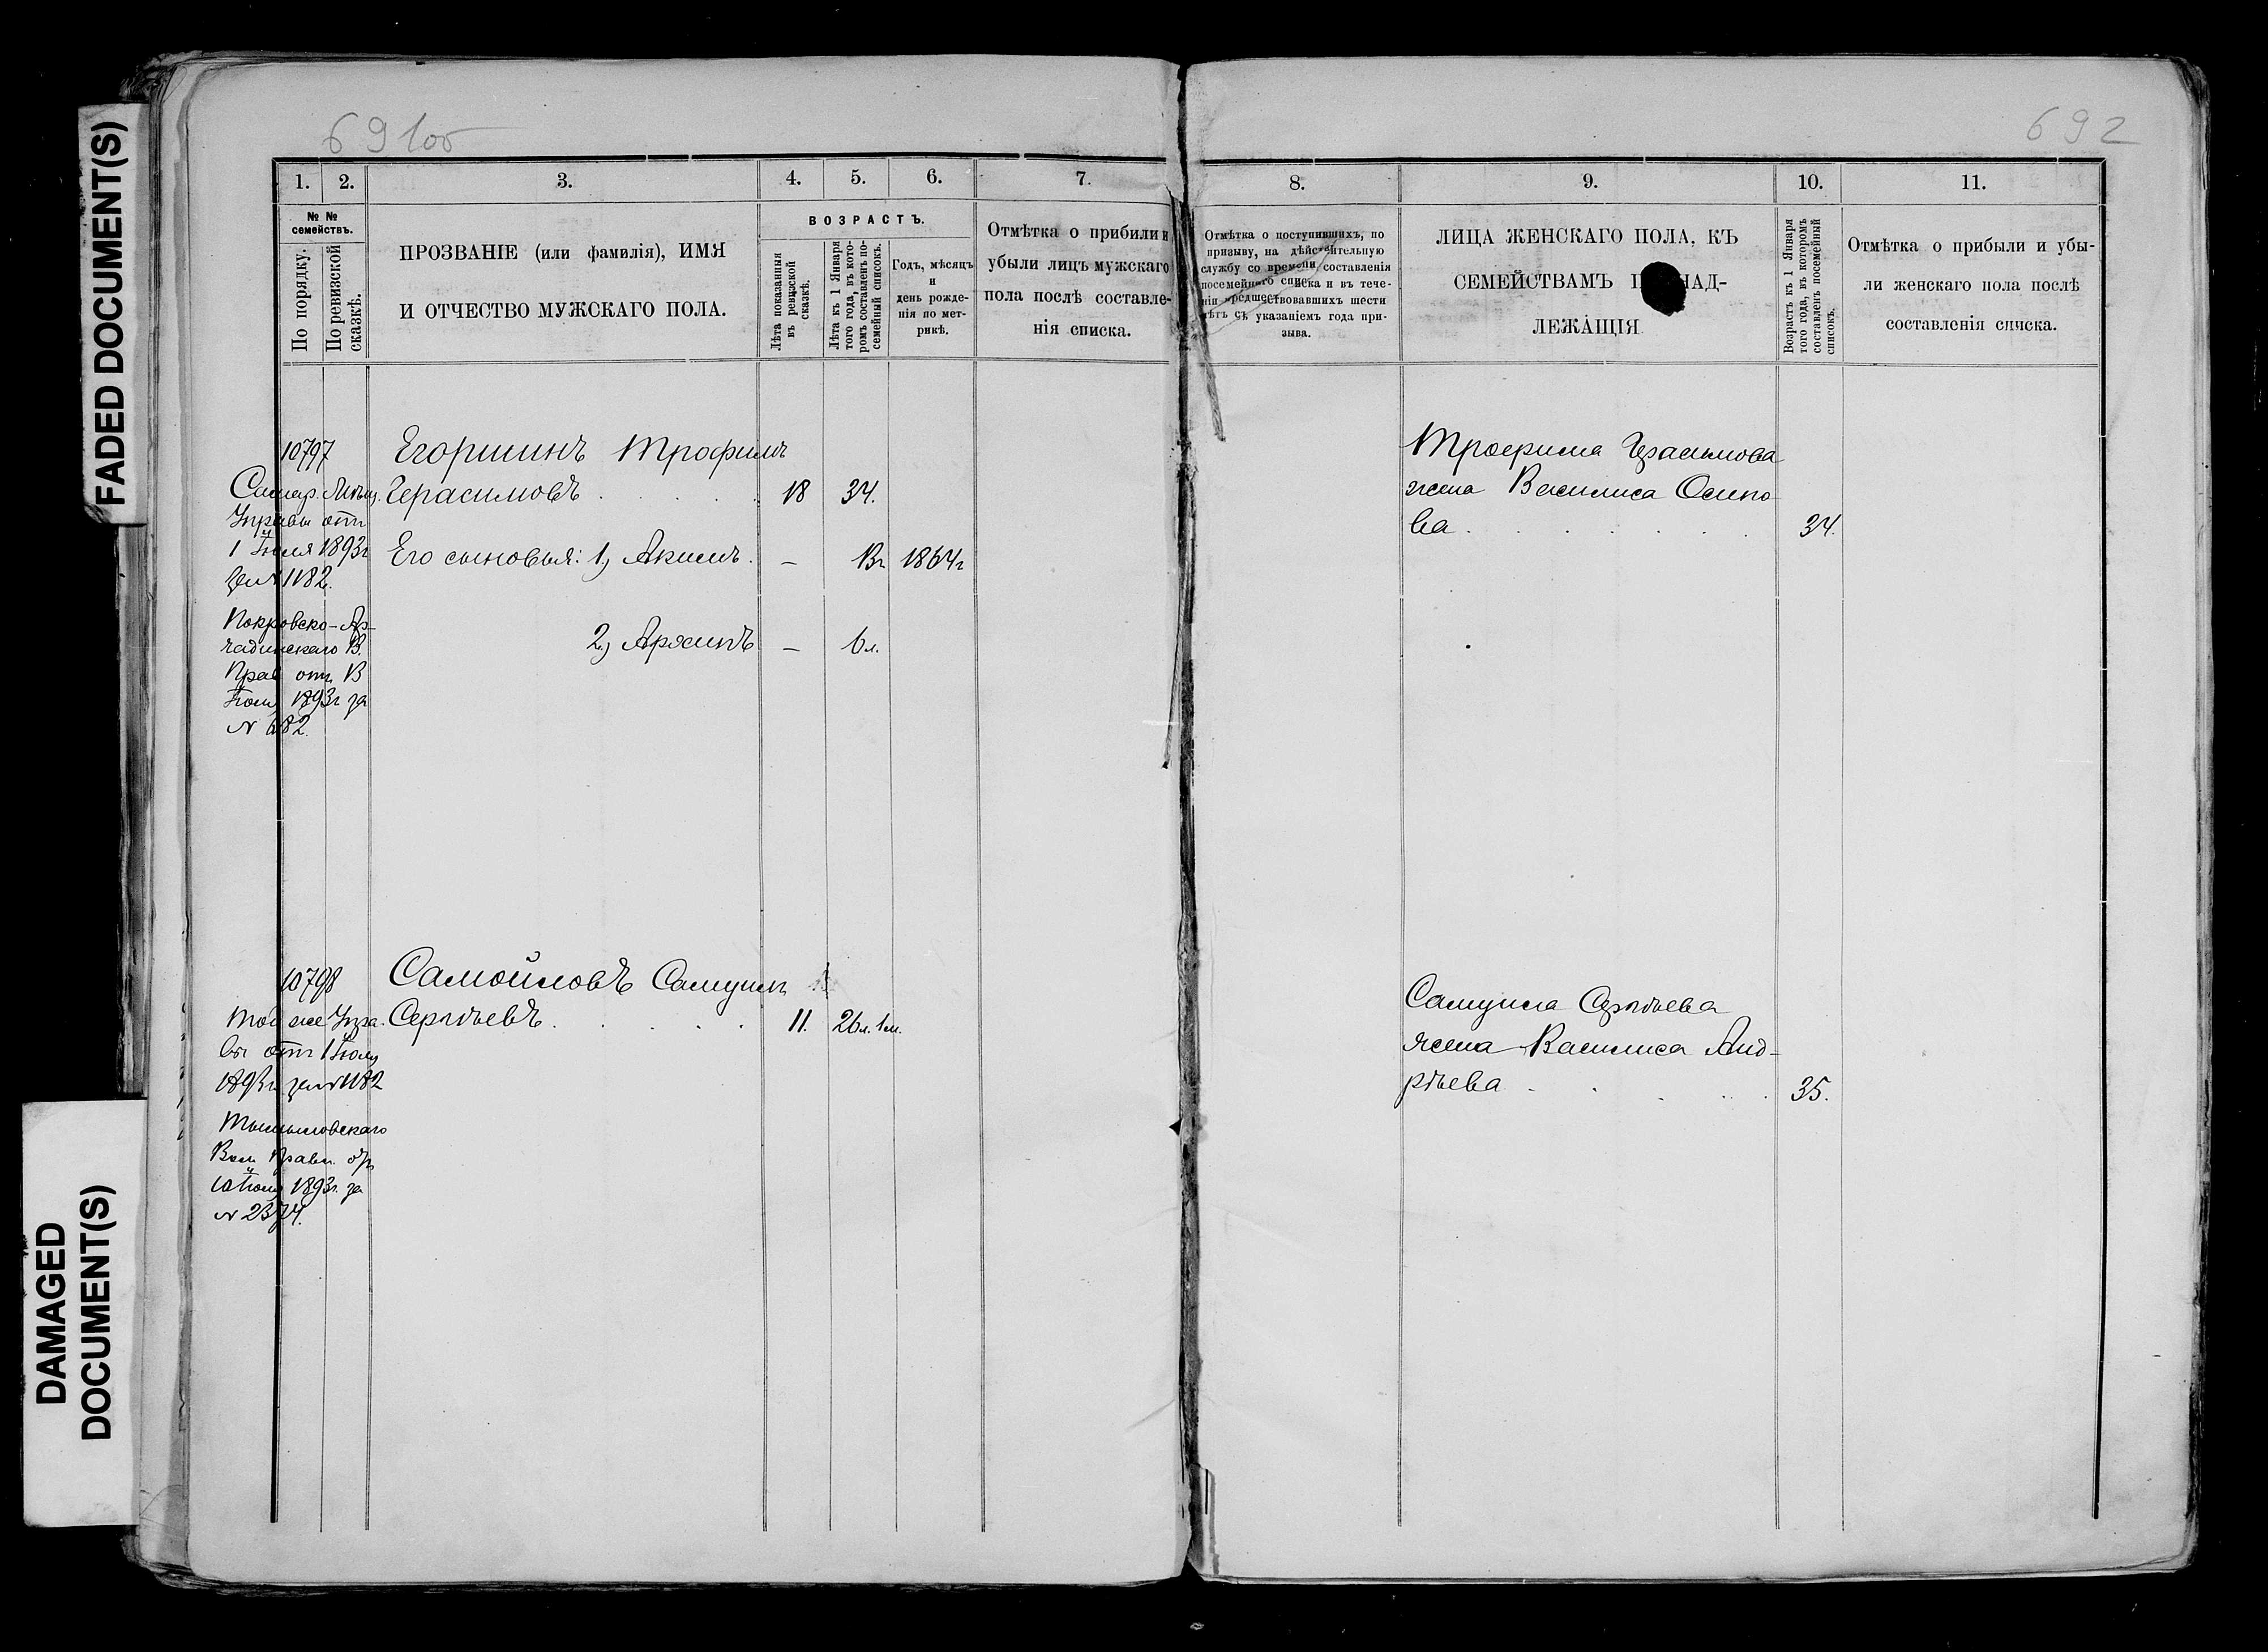 FADED DOCUMENT(S)
DAMAGED
DOCUMENT(S)
691об
1. 2. 3. 4. 5. 6. 7.
№ №
семействъ.
По порядку.
По ревизской
сказкѣ.
ПРОЗВАНІЕ (или фамилія), ИМЯ
И ОТЧЕСТВО МУЖСКАГО ПОЛА.
ВОЗРАСТЪ.
Лѣта показанныя
въ ревизской
сказкѣ.
Лѣта къ 1 Января
того года, въ кото-
ромъ составленъ по-
семейный списокъ.
Годъ, мѣсяцъ
и
день рожде-
нія по мет-
рикѣ.
Отмѣтка о прибыли и
убыли лицъ мужскаго
пола послѣ составле-
нія списка.
10797 Егоршинъ Трофимъ
Самар. Мѣщ. Герасимовъ 18 34.
Управы отъ
1 Іюля 1893г Его сыновья: 1) Акимъ. — 13л 1864г
за № 1182.
Покровско-Ар-
чадинскаго В. 2) Архипъ — 6л.
Прав отъ 13
Іюля 1893г за
№ 682.
10798 Самойловъ Самуилъ
Той же Упра- Сергѣевъ 11. 26л. 1м.
вы отъ 1 Іюля
1893г за № 1182
Вол. Правл. отъ
10 Іюля 1893г. за
№ 2374.
692
8. 9. 10. 11.
Отмѣтка о поступившихъ, по
призыву, на дѣйствительную
службу со времени составленія
посемейнаго списка и въ тече-
ніи предшествовавшихъ шести
лѣтъ съ указаніемъ года при-
зыва.
ЛИЦА ЖЕНСКАГО ПОЛА, КЪ
СЕМЕЙСТВАМЪ П НАД-
ЛЕЖАЩІЯ
Возрастъ къ 1 Января
того года, въ которомъ
составленъ посемейный
списокъ.
Отмѣтка о прибыли и убы-
ли женскаго пола послѣ
составленія списка.
Трофима Герасимова
жена Василиса Осипо
ва 34.
Самуила Сергѣева
жена Василиса Анд-
рѣева 35.